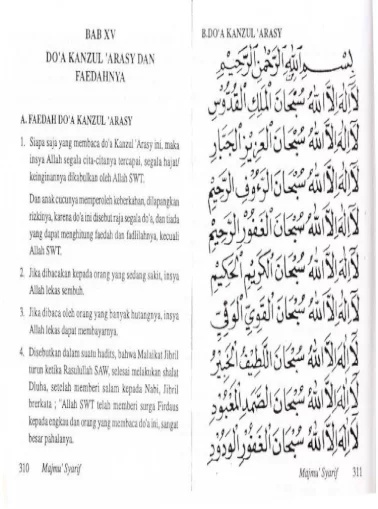 BAB XV
DO'A KANZUL 'ARASY DAN
FAEDAHNYA
A. FAEDAH DO'A KANZUL 'ARASY
1. Siapa saja yang membaca do'a Kanzul 'Arasy ini, maka
insya Allah segala cita-citanya tercapai, segala hajat/
keinginannya dikabulkan oleh Allah SWT.
Dan anak cucunya memperoleh keberkahan, dilapangkan
rizkinya, karena do'a ini disebut raja segala do'a, dan tiada
yang dapat menghitung faedah dan fadlilahnya, kecuali
Allah SWT.
2. Jika dibacakan kepada orang yang sedang sakit, insya
Allah lekas sembuh.
3. Jika dibaca oleh orang yang banyak hutangnya, insya
Allah lekas dapat membayarnya.
4. Disebutkan dalam suatu hadits, bahwa Malaikat Jibril
turun ketika Rasulullah SAW, selesai melakukan shalat
Dluha, setelah memberi salam kepada Nabi, Jibril
brerkata ; "Allah SWT telah memberi surga Firdaus
kepada engkau dan orang yang membaca do'a ini, sangat
besar pahalanya.
310 Majmu' Syarif
B.DO'A KANZUL 'ARASY
بِسْمِ اللهِ الرَّحْمٰنِ الرَّحِيْمِ
لَا اِلٰهَ اِلَّا اللهُ سُبْحَانَ الْمَلِكِ الْقُدُّوْسِ
لَا اِلٰهَ اِلَّا اللهُ سُبْحَانَ الْعَزِيْزِ الْجَبَّارِ
لَا اِلٰهَ اِلَّا اللهُ سُبْحَانَ الرَّءُوْفِ الرَّحِيْمِ
لَا اِلٰهَ اِلَّا اللهُ سُبْحَانَ الْغَفُوْرِ الرَّحِيْمِ
لَا اِلٰهَ اِلَّا اللهُ سُبْحَانَ الْكَرِيْمِ الْحَكِيْمِ
لَا اِلٰهَ اِلَّا اللهُ سُبْحَانَ الْقَوِيِّ الْوَفِيِّ
لَا اِلٰهَ اِلَّا اللهُ سُبْحَانَ اللَّطِيْفِ الْخَبِيْرِ
لَا اِلٰهَ اِلَّا اللهُ سُبْحَانَ الصَّمَدِ الْمَعْبُوْدِ
لَا اِلٰهَ اِلَّا اللهُ سُبْحَانَ الْغَفُوْرِ الْوَدُوْدِ
Majmu' Syarif 311